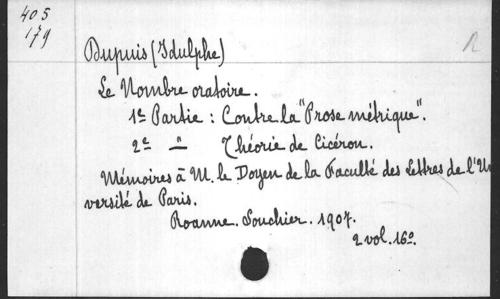 405
179
Dupuis (Idulphe)
Le Nombre oratoire.
1e Partie : Contre la "Prose métrique".
2e " Théorie de Cicéron.
Mémoires à M. le Doyen de la Faculté des Lettres de l'Uni
versité de Paris.
Roanne. Souchier. 1907.
2 vol. 16o.